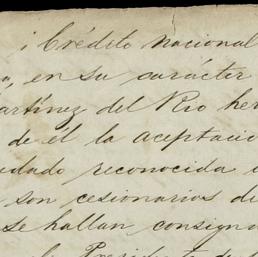 i Crédito Nacional
, en su carácter
artínez del Rio her
de él la aceptacio
dado reconocida
son cesionarios de
se hallan consign